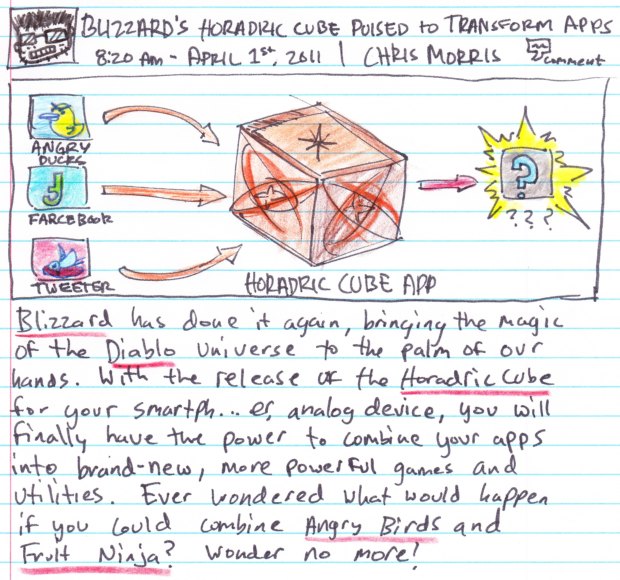 BLIZZARD'S HORADRIC CUBE POISED TO TRANSFORM APPS
8:20 AM - APRIL 1ST, 2011 | CHRIS MORRIS comment
ANGRY
DUCKS
FARCEBOOK
TWEETER
?
???
HORADRIC CUBE APP
Blizzard has done it again, bringing the magic
of the Diablo Universe to the palm of our
hands. With the release of the Horadric Cube
for your smartph... er, analog device, you will
finally have the power to combine your apps
into brand-new, more powerful games and
utilities. Ever wondered what would happen
if you could combine Angry Birds and
Fruit Ninja? Wonder no more!